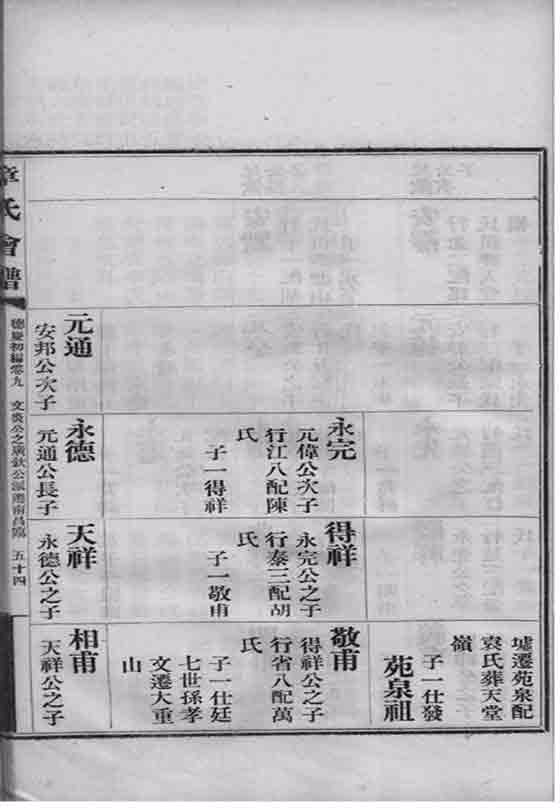 元通
安邦公次子
永完
元偉公次子
行江八配陳
氏
子一得祥
永德
元通公長子
得祥
永完公之子
行秦三配胡
氏
子一敬甫
天祥
永德公之子
墟遷苑泉配
袁氏葬天堂
嶺
子一仕發
苑泉祖
敬甫
得祥公之子
行省八配萬
氏
子一仕廷
七世孫孝
文遷大重
山
相甫
天祥公之子
章氏會譜
德慶初編卷九
公之廣欽公派遷南昌臨
五十四